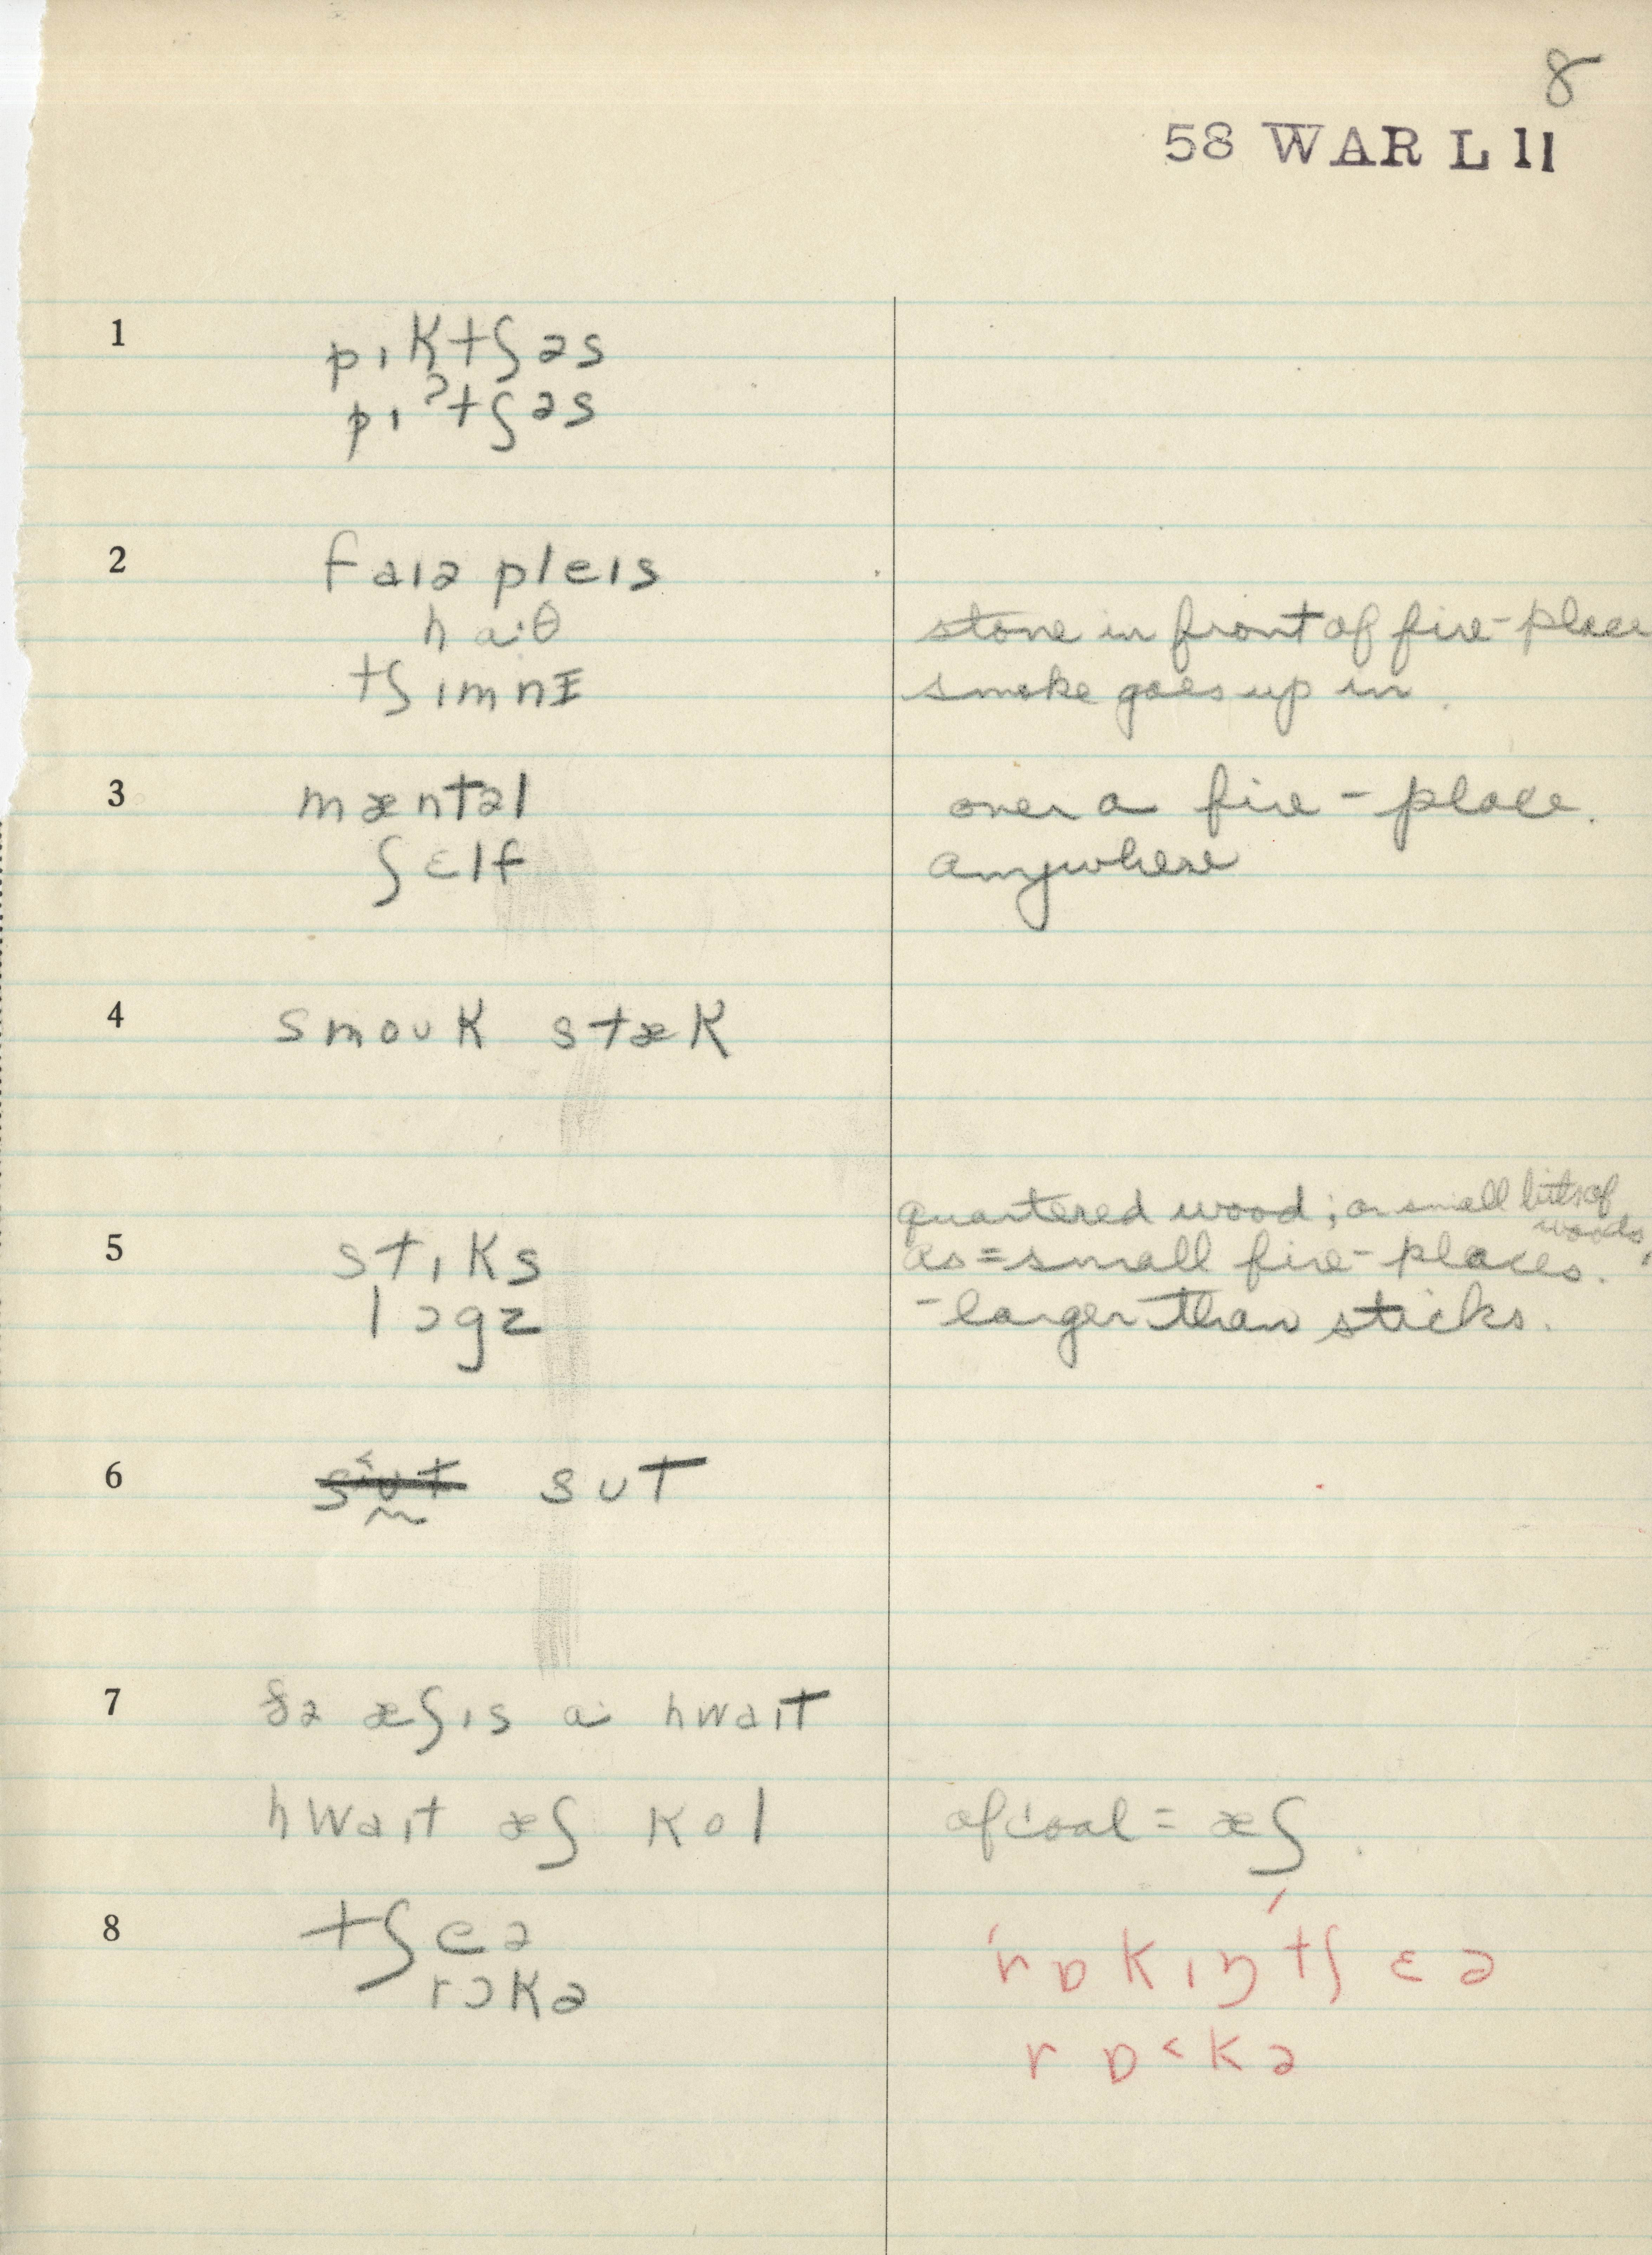 8
58 WAR L 11
1 pɪktʃəs
pɪʔtʃəs
2 faɪə pleɪs
ha:θ stone in front of fire-place
tʃɪmnɪ smoke goes up in.
3 mæntəl over a fire-place.
ʃɛlf anywhere
4 smoʊk stæk
quartered wood; or small bits of woods,
5 stɪks as = small fire-places.
lɔgz - larger than sticks.
6 sʊt sʊt
7 ðə æʃɪs a: hwaɪt
hwaɪt æʃ kol of coal = æʃ.
8 tʃeə ˈrɒkɪŋˈtʃɛə
rɔkə rɒ˂kə